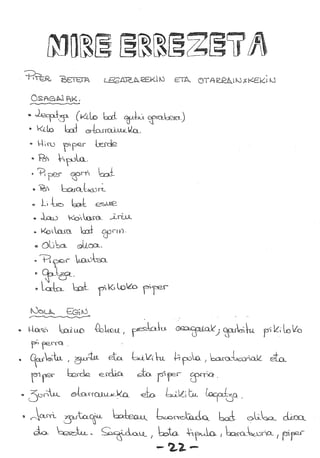 NIRE ERREZETA
PIPER BETETA LEGATZAREKIN ETA OTARRAINXKEKIN
OSAGAIAK.
• Legatza (Kilo bat gutxi gorabera)
• Kilo bat otarrainxka.
• Hiru piper berde
• Bi tipula.
• Piper gorri bat
• Bi baratxuri
• Litro bat esne
• Lau koilara irin
• Koilara bat gurin.
• Oliba olioa.
• Piper hautsa
• Gatza.
• Lata bat pikiloko piper
NOLA EGIN
• Hasi baino lehen, pestatu osagaiak; garbitu pikiloko
piperra.
• Garbitu, zuritu eta txikitu tipula, baratxuriak eta
piper berde erdia eta piper gorria.
• Zuritu otarrainxka eta txikitu legatza.
• Jarri zartagin batean burruntzalia bat oliba olioa
eta berotu. Segidan, bota tipula, baratxuria, piper
- 22 -